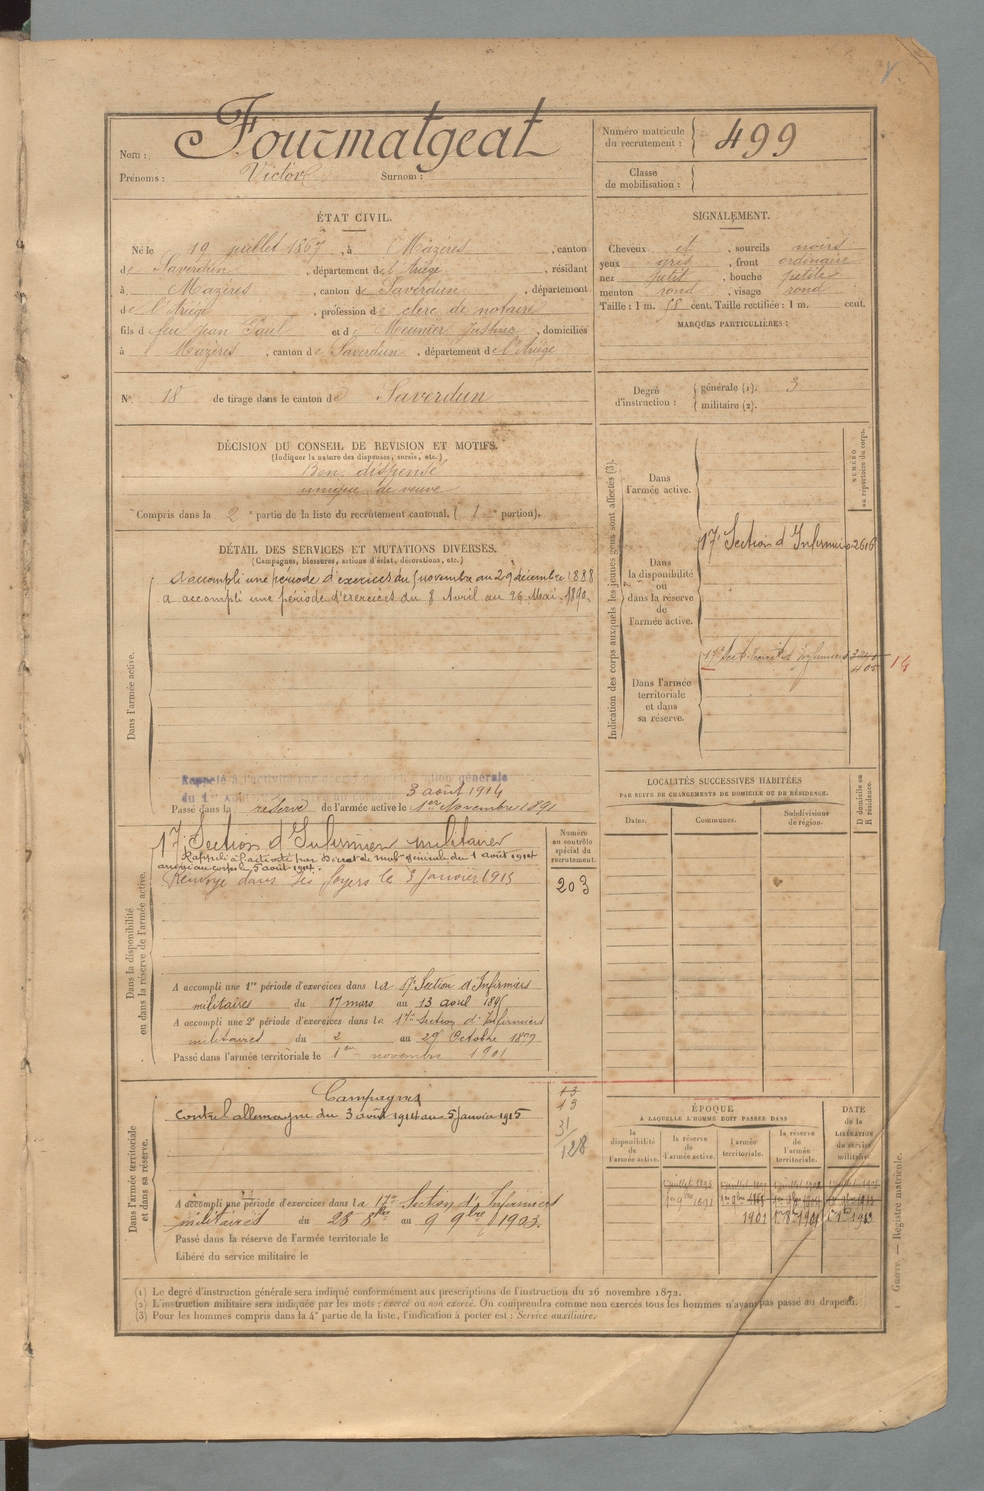 Nom : Fourmatgeat
Prénoms : Victor Surnom :
Numéro matricule du recrutement : 499
Classe de mobilisation :
ÉTAT CIVIL.
Né le 19 juillet 1867, à Mazères, canton
de Saverdun, département de l'Ariège, résidant
à Mazères, canton de Saverdun, département
de l'Ariège, profession de clerc de notaire
fils de feu Jean Paul et de Meunier Justine, domiciliés
à Mazères, canton de Saverdun, département de l'Ariège
SIGNALEMENT.
Cheveux et, sourcils noirs
yeux gris, front ordinaire
nez petit, bouche petite
menton rond, visage rond
Taille : 1 m. 58 cent. Taille rectifiée : 1 m. cent.
MARQUES PARTICULIÈRES :
N° 18 de tirage dans le canton de Saverdun
Degré d'instruction : générale (1). 3
militaire (2).
DÉCISION DU CONSEIL DE REVISION ET MOTIFS.
(Indiquer la nature des dispenses, sursis, etc.)
Bon, dispensé
unique de veuve
Compris dans la 2e partie de la liste du recrutement cantonal. (1e portion).
DÉTAIL DES SERVICES ET MUTATIONS DIVERSES.
(Campagnes, blessures, actions d'éclat, décorations, etc.)
Dans l'armée active.
A accompli une période d'exercices du 5 novembre au 29 décembre 1888
a accompli une période d'exercices du 8 Avril au 26 Mai 1890.
Rappelé à l'activité générale
du 1er Août
3 août 1914
Passé dans la réserve de l'armée active le 1er Novembre 1891
Dans la disponibilité ou dans la réserve de l'armée active.
17e Section d'Infirmiers militaires
Rappelé à l'activité par Décret de mobon générale du 1 août 1914
arrivé au corps le 5 août 1914.
Renvoyé dans ses foyers le 5 janvier 1915
Numéro au contrôle spécial du recrutement.
203
A accompli une 1re période d'exercices dans la 17e Section d'Infirmiers
militaires du 17 mars au 13 avril 189
A accompli une 2e période d'exercices dans la 17e Section d'Infirmiers
militaires du 2 au 29 Octobre 1897
Passé dans l'armée territoriale le 1er novembre 1901
Dans l'armée territoriale et dans sa réserve.
Campagnes
contre l'allemagne du 3 août 1914 au 5 janvier 1915
13
13
31
128
A accompli une période d'exercices dans la 17e Section d'Infirmiers
militaires du 28 8bre au 9 9bre 1903.
Passé dans la réserve de l'armée territoriale le
Libéré du service militaire le
Indication des corps auxquels les jeunes gens sont affectés (3).
NUMÉRO au répertoire du corps.
Dans l'armée active.
Dans la disponibilité ou dans la réserve de l'armée active.
17e Section d'Infirmiers 2616
Dans l'armée territoriale et dans sa réserve.
17e Sect. Territ. d'Infirmiers
405 14
LOCALITÉS SUCCESSIVES HABITÉES
PAR SUITE DE CHANGEMENTS DE DOMICILE OU DE RÉSIDENCE.
Dates. Communes. Subdivisions de région. D domicile ou R résidence.
ÉPOQUE
A LAQUELLE L'HOMME DOIT PASSER DANS
la disponibilité de l'armée active. la réserve de l'armée active. l'armée territoriale. la réserve de l'armée territoriale.
DATE de la LIBÉRATION du service militaire.
1901
(1) Le degré d'instruction générale sera indiqué conformément aux prescriptions de l'instruction du 26 novembre 1872.
(2) L'instruction militaire sera indiquée par les mots : exercé ou non exercé. On comprendra comme non exercés tous les hommes n'ayant pas passé au drapeau.
(3) Pour les hommes compris dans la 4e partie de la liste, l'indication à porter est : Service auxiliaire.
Guerre. — Registre matricule.